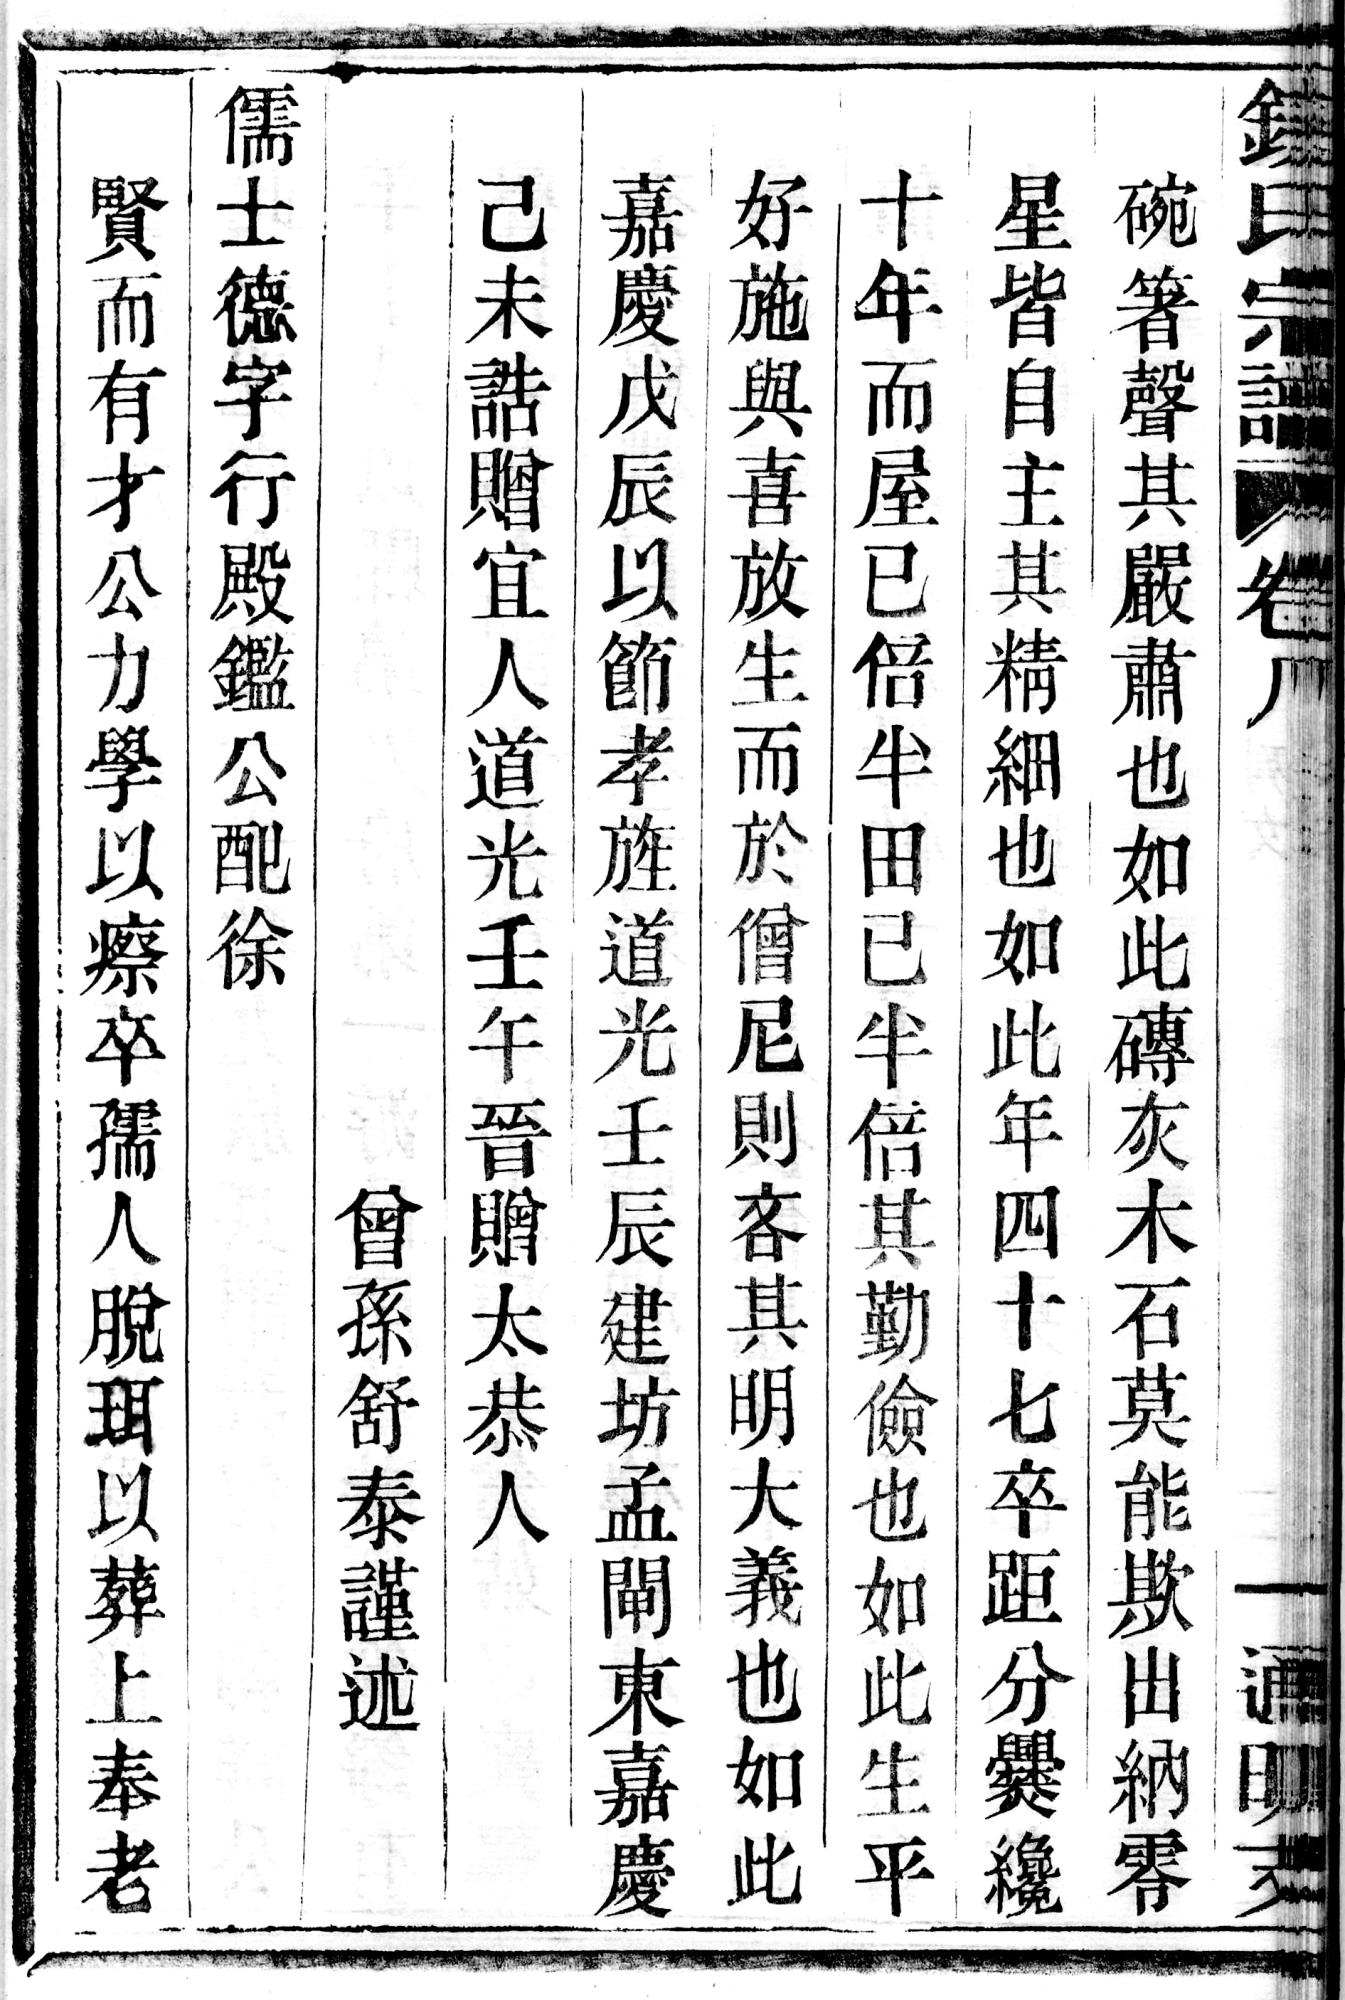 氏宗譜 卷八 一
碗箸聲其嚴肅也如此磚灰木石莫能欺出納零
星皆自主其精細也如此年四十七卒距分爨纔
十年而屋已倍半田已半倍其勤儉也如此生平
好施與喜放生而於僧尼則吝其明大義也如此
嘉慶戊辰以節孝旌道光壬辰建坊孟閘東嘉慶
己未誥贈宜人道光壬午晉贈太恭人
曾孫舒泰謹述
儒士德字行殿鑑公配徐
賢而有才公力學以瘵卒孺人脫珥以葬上奉老